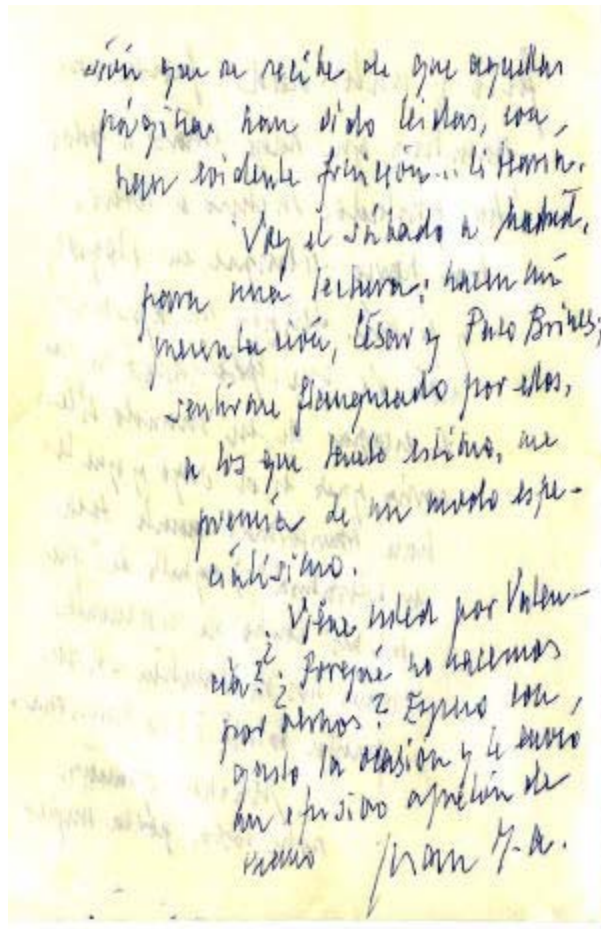 sión que se recibe de que aquellas
páginas han sido leídas, con,
haya evidente fruición... literaria.
Voy el sábado a Madrid,
para una lectura; hacen mi
presentación, César y Paco Brines;
sentirme flanqueado por ellos,
a los que tanto estimo, me
premia de un modo espe-
cialísimo.
¿Viene usted por Valen-
cia? ¿Porqué no hacemos
por vernos? Espero con,
gusto la ocasión y le envío
un efusivo apretón de
mano Juan